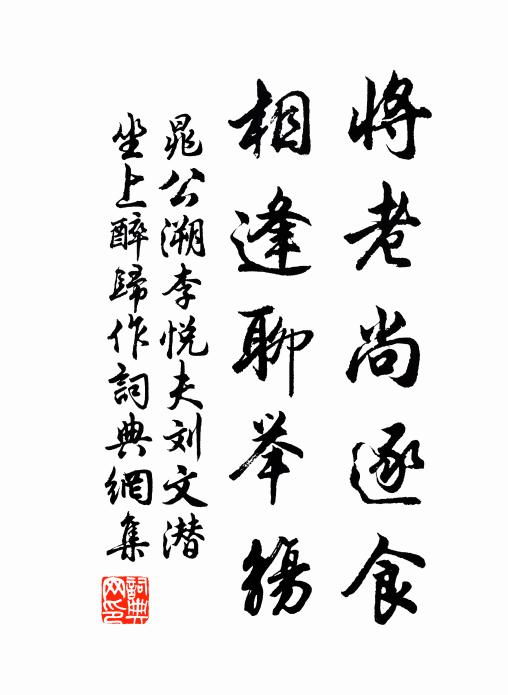 将老尚逐食
相逢聊举觞
晁公溯李悦夫刘文潜
坐上醉歸作詞典網集
詞典网印